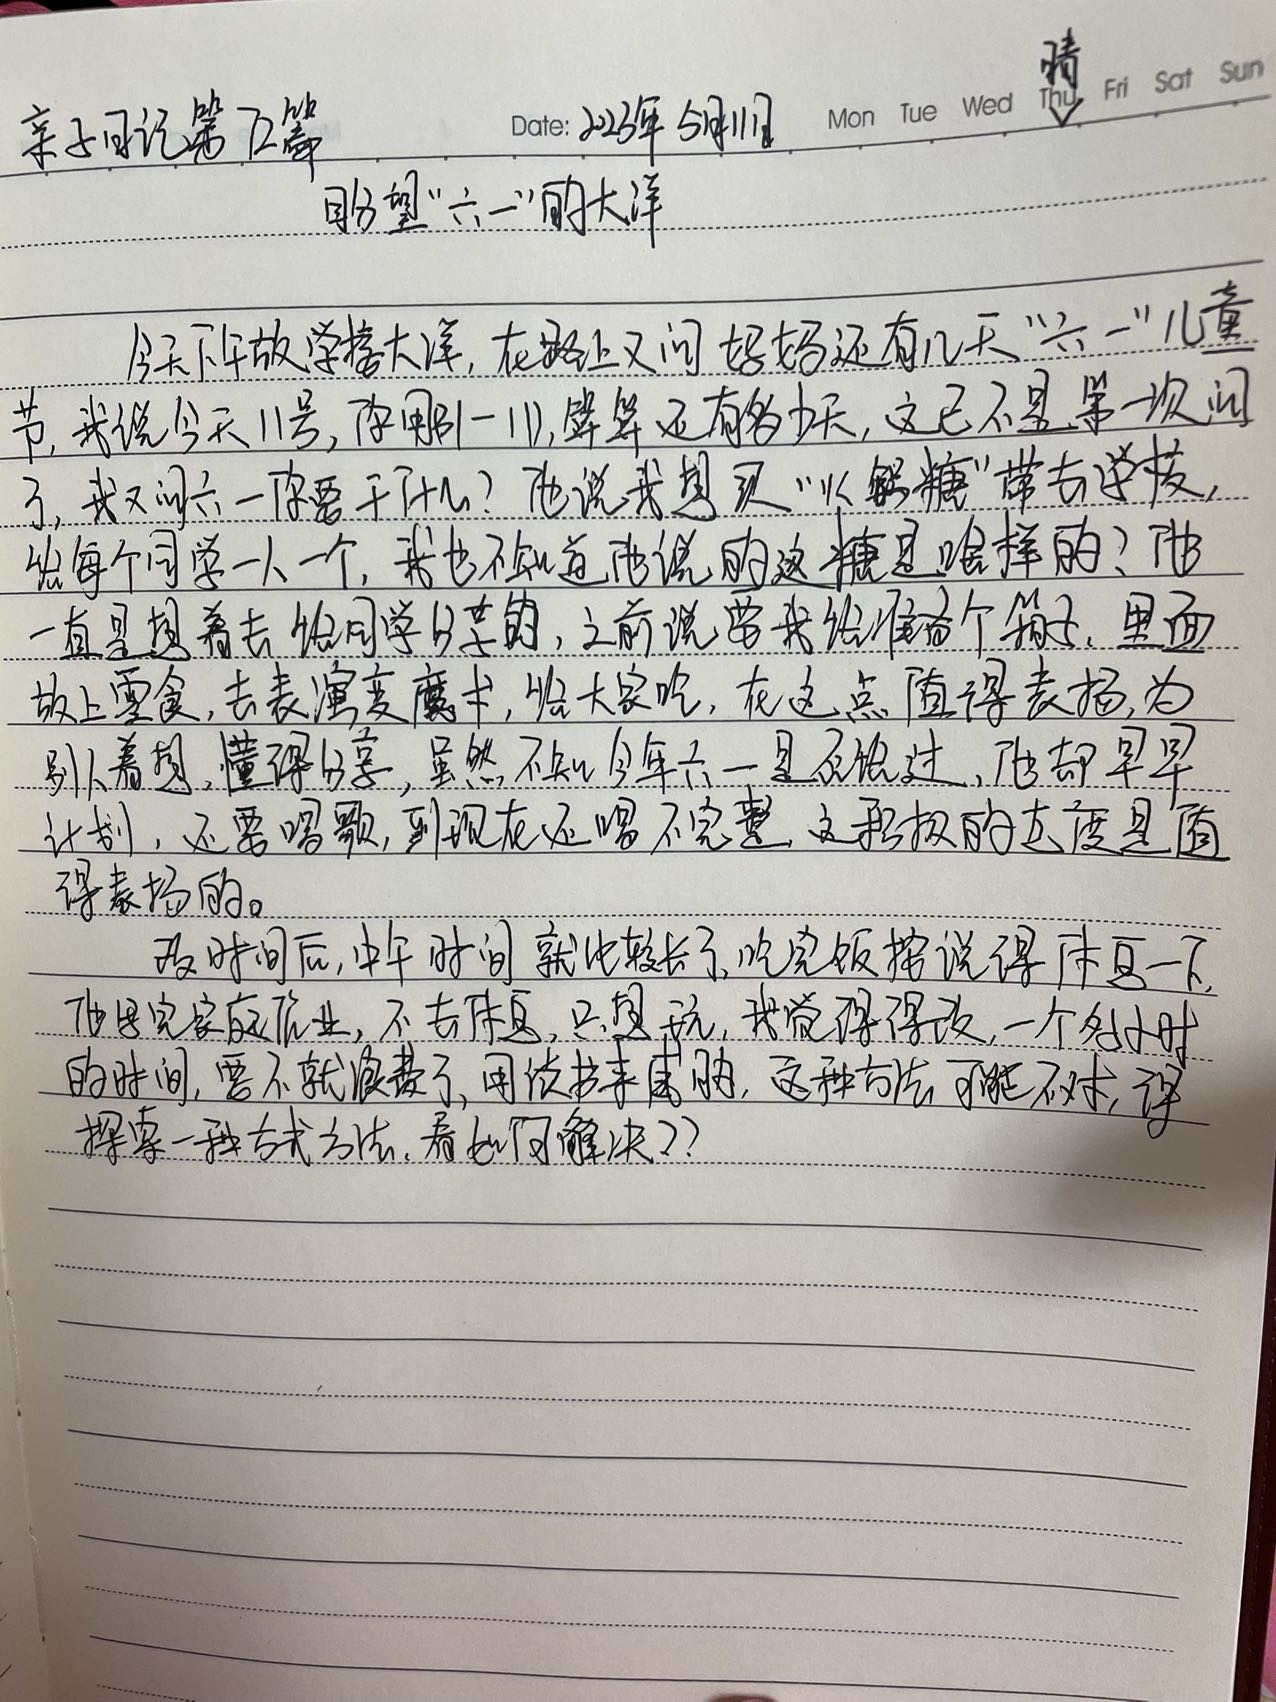 晴
亲子日记第五篇 Date: 2023年5月11日 Mon Tue Wed Thu Fri Sat Sun
盼望“六一”的大洋
今天下午放学接大洋,在路上又问妈妈还有几天“六一”儿童
节,我说今天11号,你用31-11,算算还有多少天,这已不是第一次问
了,我又问六一你要干什么?他说我想买“糖”带去学校,
给每个同学一人一个,我也不知道他说的这糖是啥样的?他
一直是想着去给同学分享的,之前说要我给准备个箱子,里面
放上零食,去表演变魔术,给大家吃,在这点值得表扬,为
别人着想,懂得分享,虽然不知今年六一是否能过,他却早早
计划,还要唱歌,到现在还唱不完整,这积极的态度是值
得表扬的。
改时间后,中午时间就比较长了,吃完饭按说得休息一下,
他写完家庭作业,不去休息,只想玩,我觉得得改,一个多小时
的时间,要不就浪费了,用读书来,这种方法可能不对,得
探索一种方式方法,看如何解决??